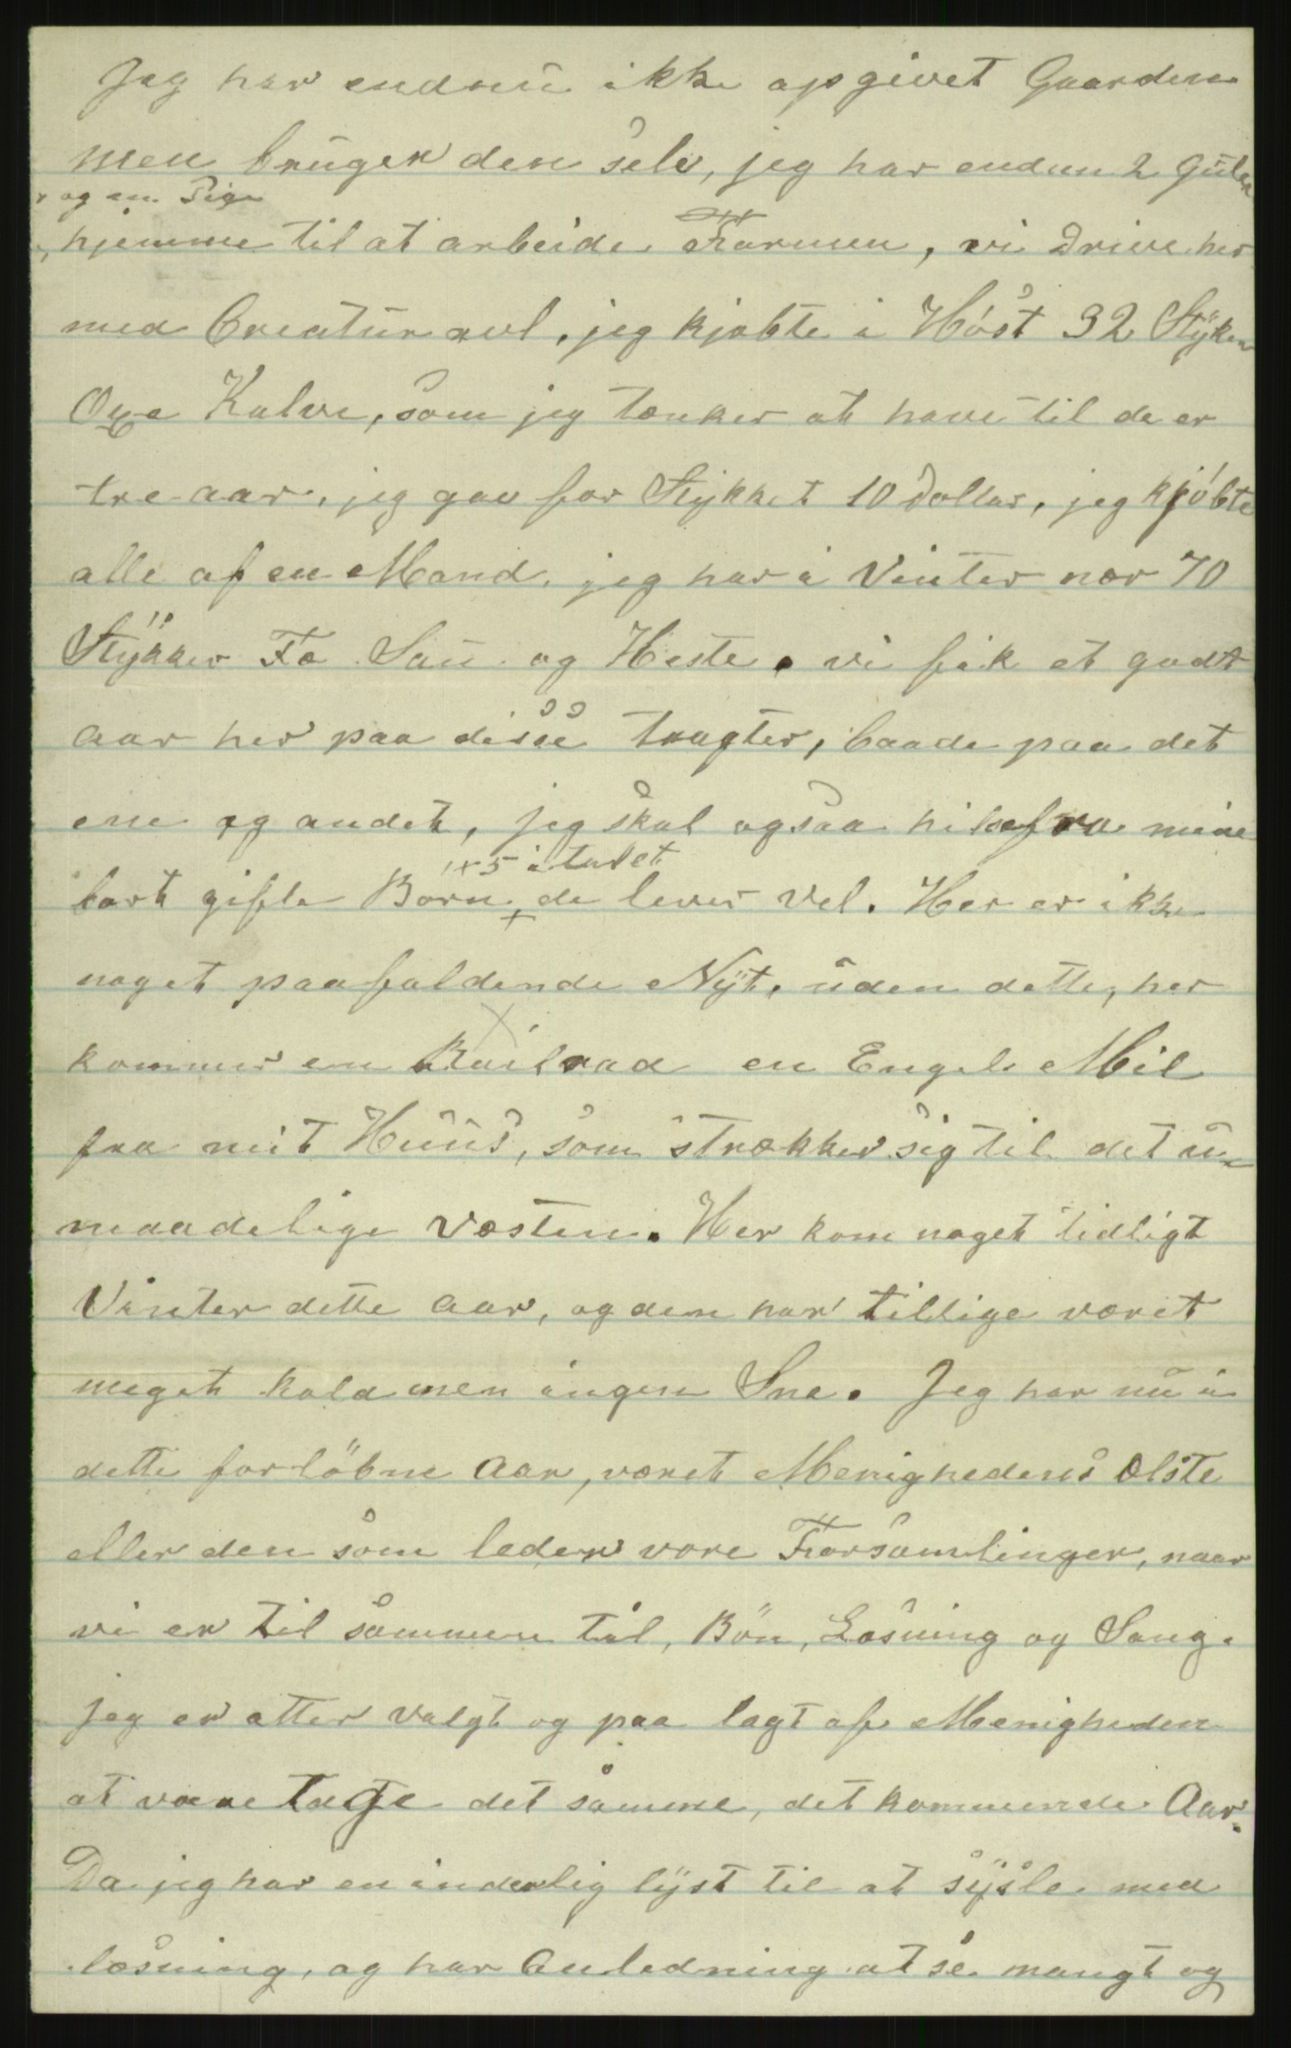 Jeg har endnu ikke opgivet Gaarden
men bruger den selv, jeg har endnu 2 Guter
og en Pige
hjemme til at arbeide Farmen, vi Drive her
med Creaturavl, jeg kjøbte i Høst 32 Stÿker
Oxe Kalve, som jeg tænker at have til de er
tre aar, jeg gav for Stykket 10 Dollar, jeg kjøbte
alle af en Mand, jeg har i Vinter nær 70
Stÿkker Fæ Sau og Heste. vi fik et godt
aar her paa disse tragter, baade paa det
ene og andet, jeg skal ogsaa hilse fra mine
+ 5 i talet
bort gifte Børn + de lever vel. Her er ikke
noget paafaldende Nÿt, uden dette, her
kommer en Railroad en Engels Mil
fra mit Huus, som strækker sig til det u-
maadelige Vesten. Her kom noget tidligt
Vinter dette aar, og den har tillige været
meget kold men ingen Sne. Jeg har nu i
dette forløbne Aar, været Menighedens Ælste
eller den som leder vore Forsamlinger, naar
vi er til sammen til, Bön, Læsning og Sang.
jeg er atter valgt og paa lagt af Menigheden
at varetage det samme, det kommende Aar.
Da jeg har en inderlig lÿst til at sÿsle med
læsning, og har Anledning at se mangt og